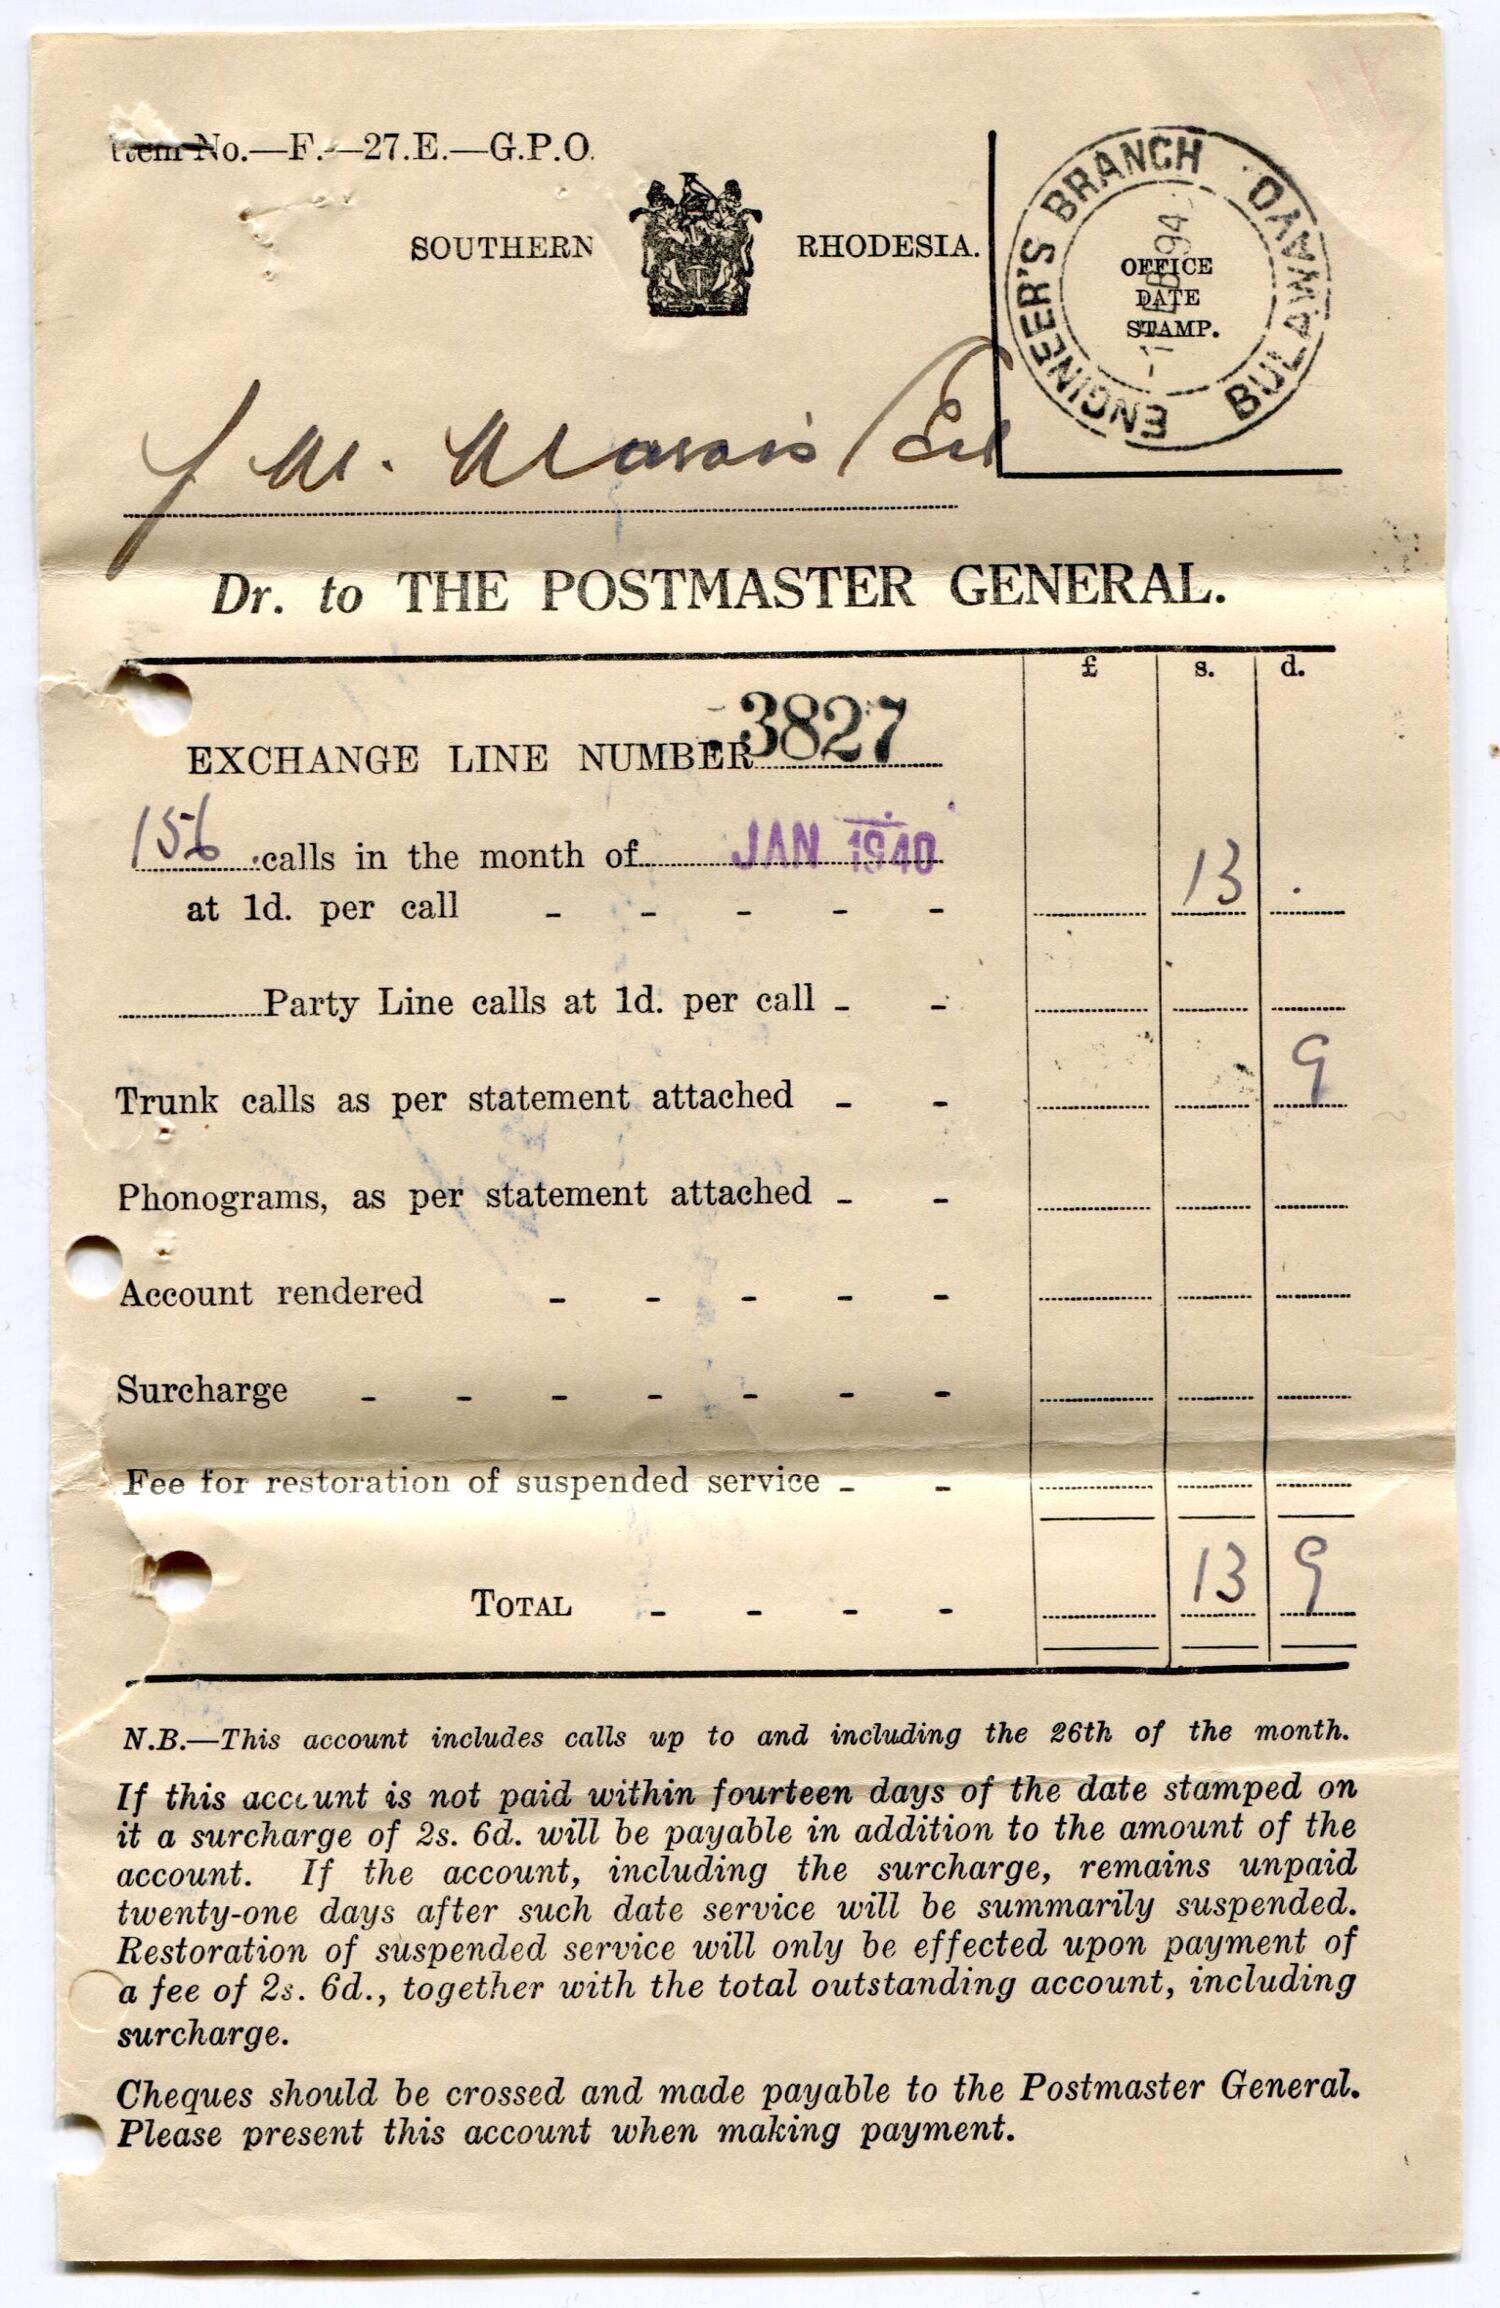 Item No.—F.—27.E.—G.P.O.
SOUTHERN RHODESIA.
ENGINEER'S BRANCH BULAWAYO
OFFICE
DATE
STAMP.
J M. Marais Esq
Dr. to THE POSTMASTER GENERAL.
£ s. d.
EXCHANGE LINE NUMBER 3827
156 calls in the month of JAN 1940
at 1d. per call - - - - - 13 .
Party Line calls at 1d. per call - -
Trunk calls as per statement attached - - 9
Phonograms, as per statement attached - -
Account rendered - - - - -
Surcharge - - - - - - -
Fee for restoration of suspended service - -
TOTAL - - - - 13 9
N.B.—This account includes calls up to and including the 26th of the month.
If this account is not paid within fourteen days of the date stamped on
it a surcharge of 2s. 6d. will be payable in addition to the amount of the
account. If the account, including the surcharge, remains unpaid
twenty-one days after such date service will be summarily suspended.
Restoration of suspended service will only be effected upon payment of
a fee of 2s. 6d., together with the total outstanding account, including
surcharge.
Cheques should be crossed and made payable to the Postmaster General.
Please present this account when making payment.